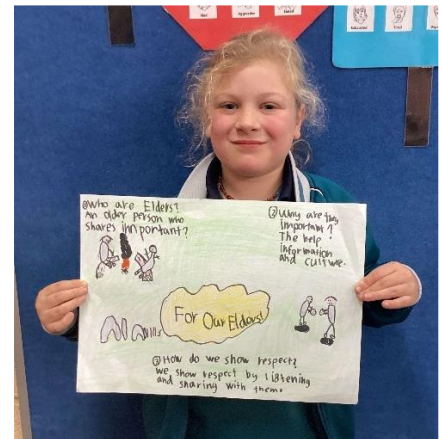 ① Who are Elders?
An older person who
shares important?
② Why are they
important?
The help
information
and culture.
For Our Elders!
③ How do we show respect?
we show respect by listening
and sharing with them.